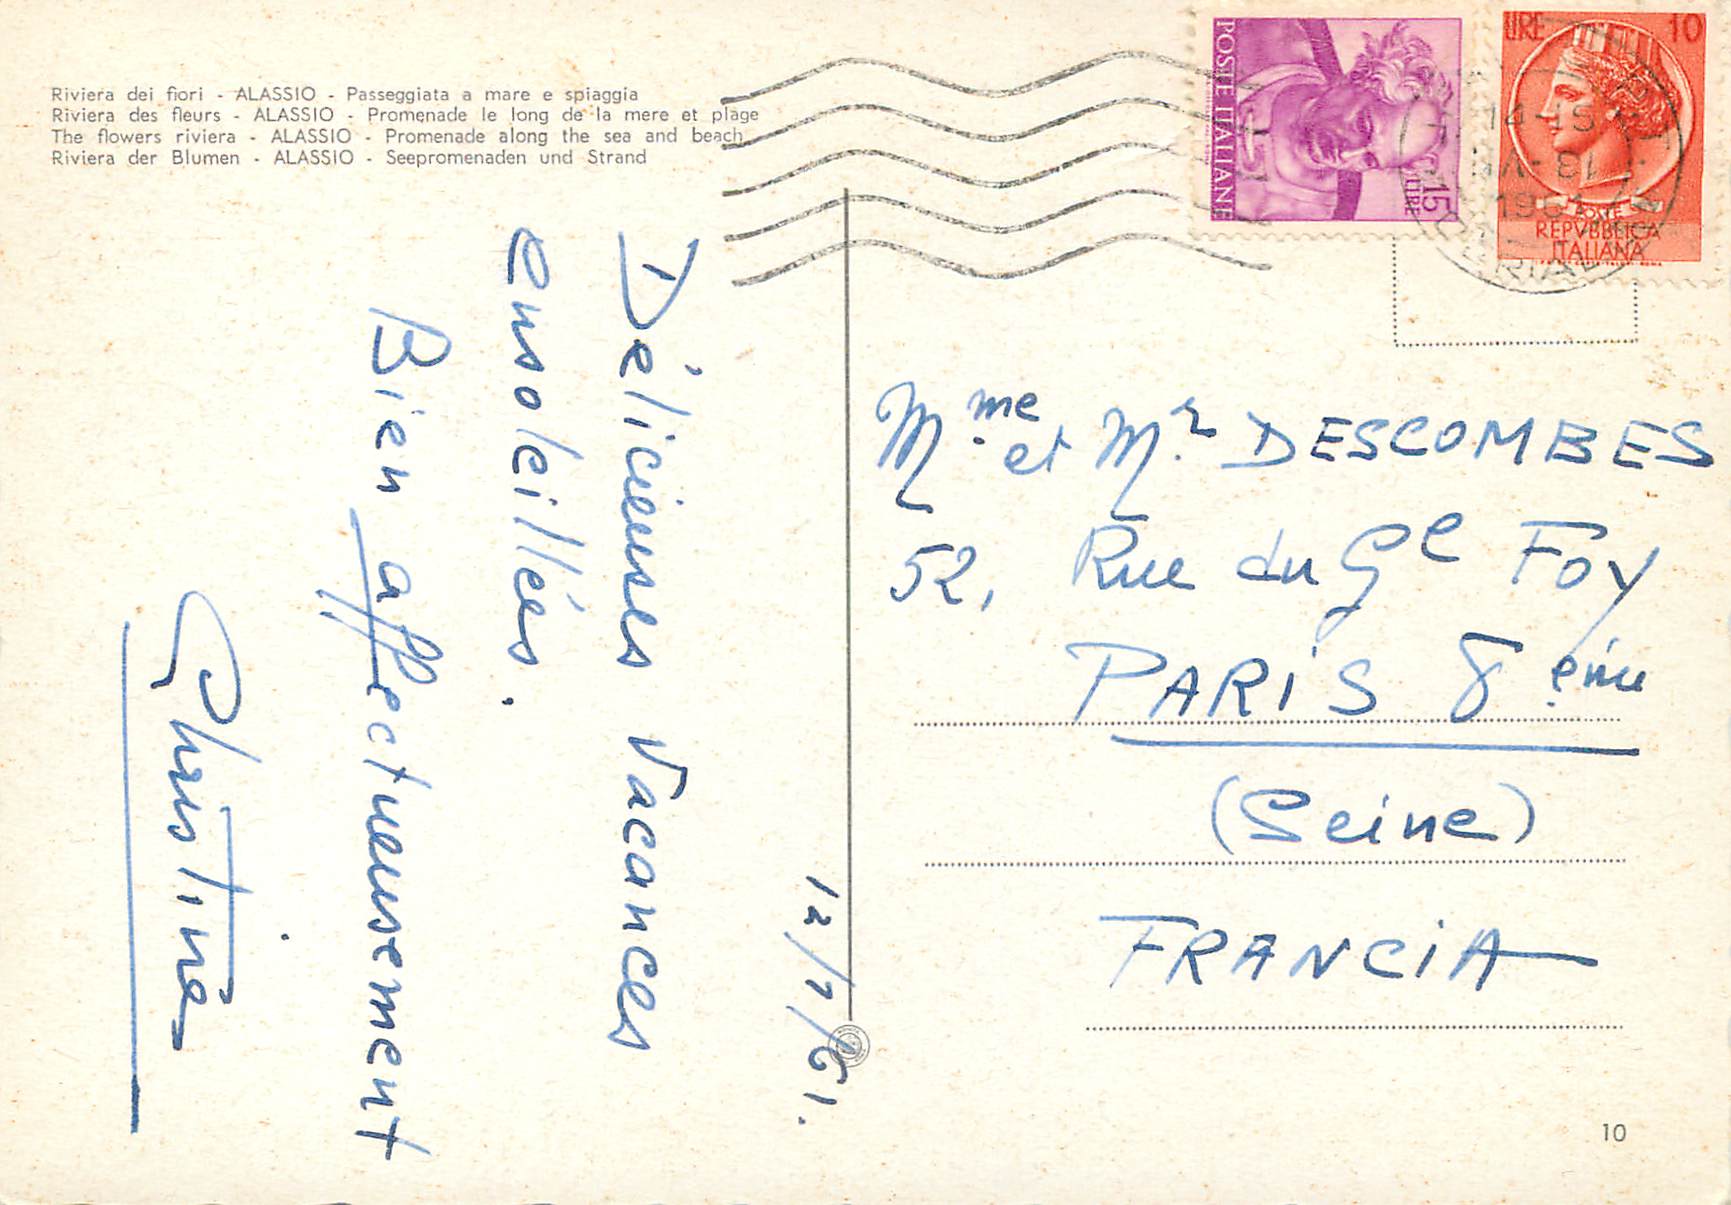 Riviera dei fiori - ALASSIO - Passeggiata a mare e spiaggia
Riviera des fleurs - ALASSIO - Promenade le long de la mere et plage
The flowers riviera - ALASSIO - Promenade along the sea and beach
Riviera der Blumen - ALASSIO - Seepromenaden und Strand
POSTE ITALIANE
LIRE 15
LIRE 10
POSTE
REPVBBLICA
ITALIANA
14-15
1961
12/7/61.
Délicieuses vacances
ensoleillées.
Bien affectueusement
Christine
Mme et Mr DESCOMBES
52, Rue du Gl Foy
PARIS 8 eme
(Seine)
FRANCIA
10